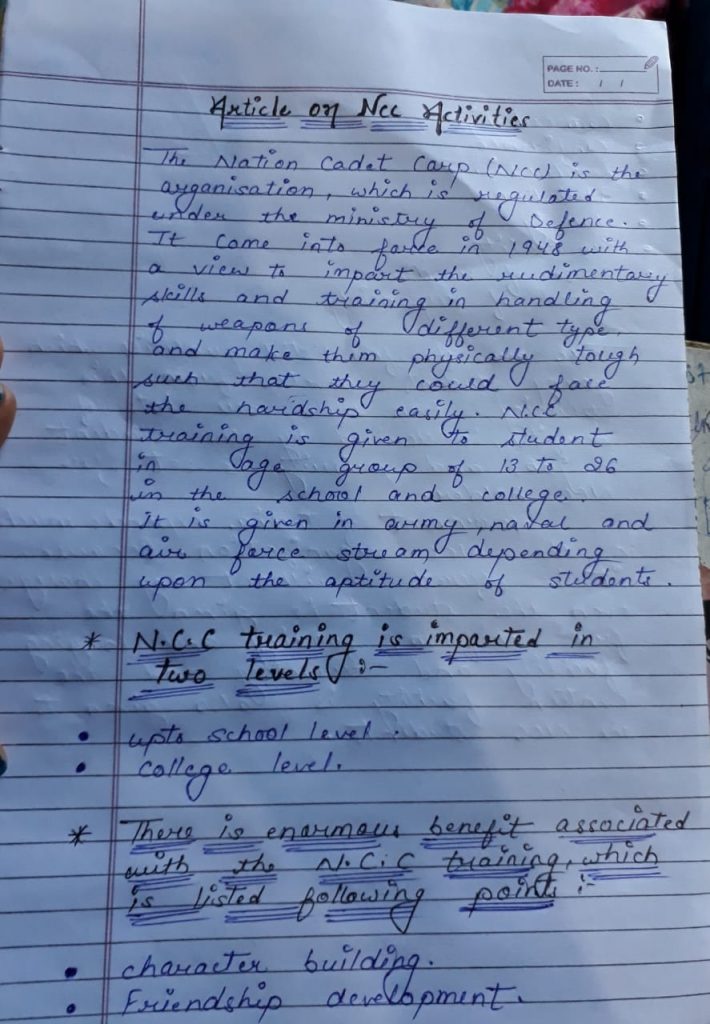 PAGE NO.:
DATE: / /
Article on Ncc Activities
The Nation Cadet Corp (Ncc) is the
organisation, which is regulated
under the ministry of Defence.
It come into force in 1948 with
a view to impart the rudimentary
skills and training in handling
of weapons of different type.
and make them physically tough
such that they could face
the hardship easily. N.c.c
training is given to student
in age group of 13 to 26
in the school and college.
it is given in army, naval and
air force stream depending
upon the aptitude of students.
* N.C.C training is imparted in
two levels :-
• upto school level.
• college level.
* There is enormous benefit associated
with the N.C.C training, which
is listed following points :-
• character building.
• Friendship development.